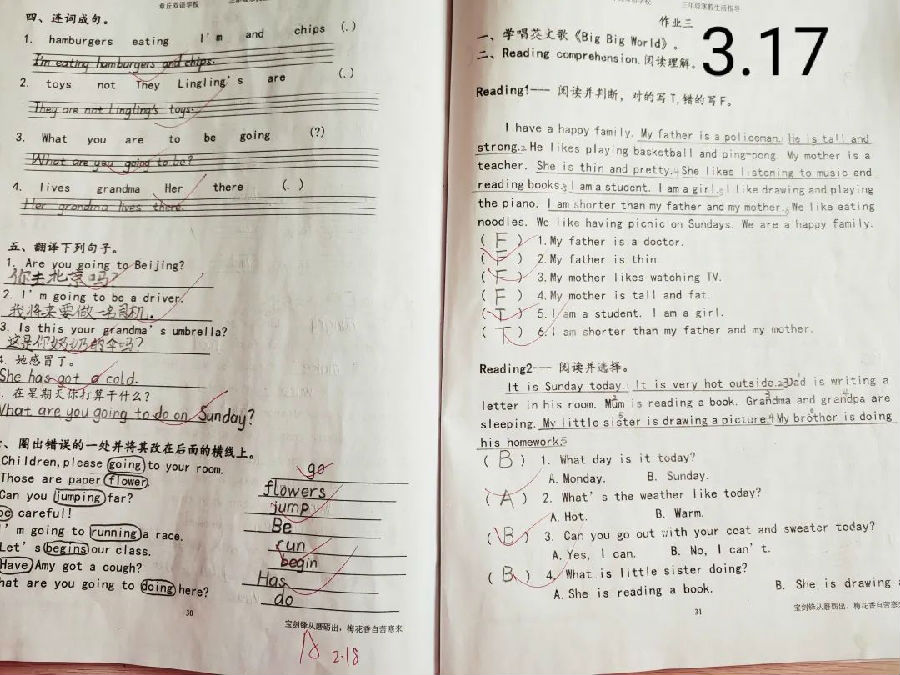 章丘双语学校
四、连词成句。
1. hamburgers eating I'm and chips (.)
I'm eating hamburgers and chips.
2. toys not They Lingling's are (.)
They are not Lingling's toys.
3. What you are to be going (?)
What are you going to be?
4. lives grandma Her there (.)
Her grandma lives there.
五、翻译下列句子。
1. Are you going to Beijing?
你去北京吗?
2. I'm going to be a driver.
我将来要做一名司机.
3. Is this your grandma's umbrella?
这是你奶奶的伞吗?
4. 地感冒了。
She has got a cold.
. 在星期天你打算干什么?
What are you going to do on Sunday?
、圈出错误的一处并将其改在后面的横线上。
Children, please going to your room. go
Those are paper flower. flowers
Can you jumping far? jump
be careful! Be
I'm going to running a race. run
Let's begins our class. begin
Have Amy got a cough? Has
hat are you going to doing here? do
30
宝剑锋从磨砺出，梅花香自苦寒来
A 2.18
三年级寒假生活指导
作业三
3.17
一、学唱英文歌《Big Big World》。
二、Reading comprehension.阅读理解。
Reading1—— 阅读并判断，对的写T,错的写F。
I have a happy family. My father is a policeman. He is tall and
strong. He likes playing basketball and ping-pong. My mother is a
teacher. She is thin and pretty. She likes listening to music and
reading books. I am a student. I am a girl. I like drawing and playing
the piano. I am shorter than my father and my mother. We like eating
noodles. We like having picnic on Sundays. We are a happy family.
( F ) 1. My father is a doctor.
( F ) 2. My father is thin.
( F ) 3. My mother likes watching TV.
( F ) 4. My mother is tall and fat.
( T ) 5. I am a student. I am a girl.
( T ) 6. I am shorter than my father and my mother.
Reading2—— 阅读并选择。
It is Sunday today. It is very hot outside. Dad is writing a
letter in his room. Mum is reading a book. Grandma and grandpa are
sleeping. My little sister is drawing a picture. My brother is doing
his homework.
( B ) 1. What day is it today?
A. Monday. B. Sunday.
( A ) 2. What's the weather like today?
A. Hot. B. Warm.
( B ) 3. Can you go out with your coat and sweater today?
A. Yes, I can. B. No, I can't.
( B ) 4. What is little sister doing?
A. She is reading a book. B. She is drawing
31
宝剑锋从磨砺出，梅花香自苦寒来